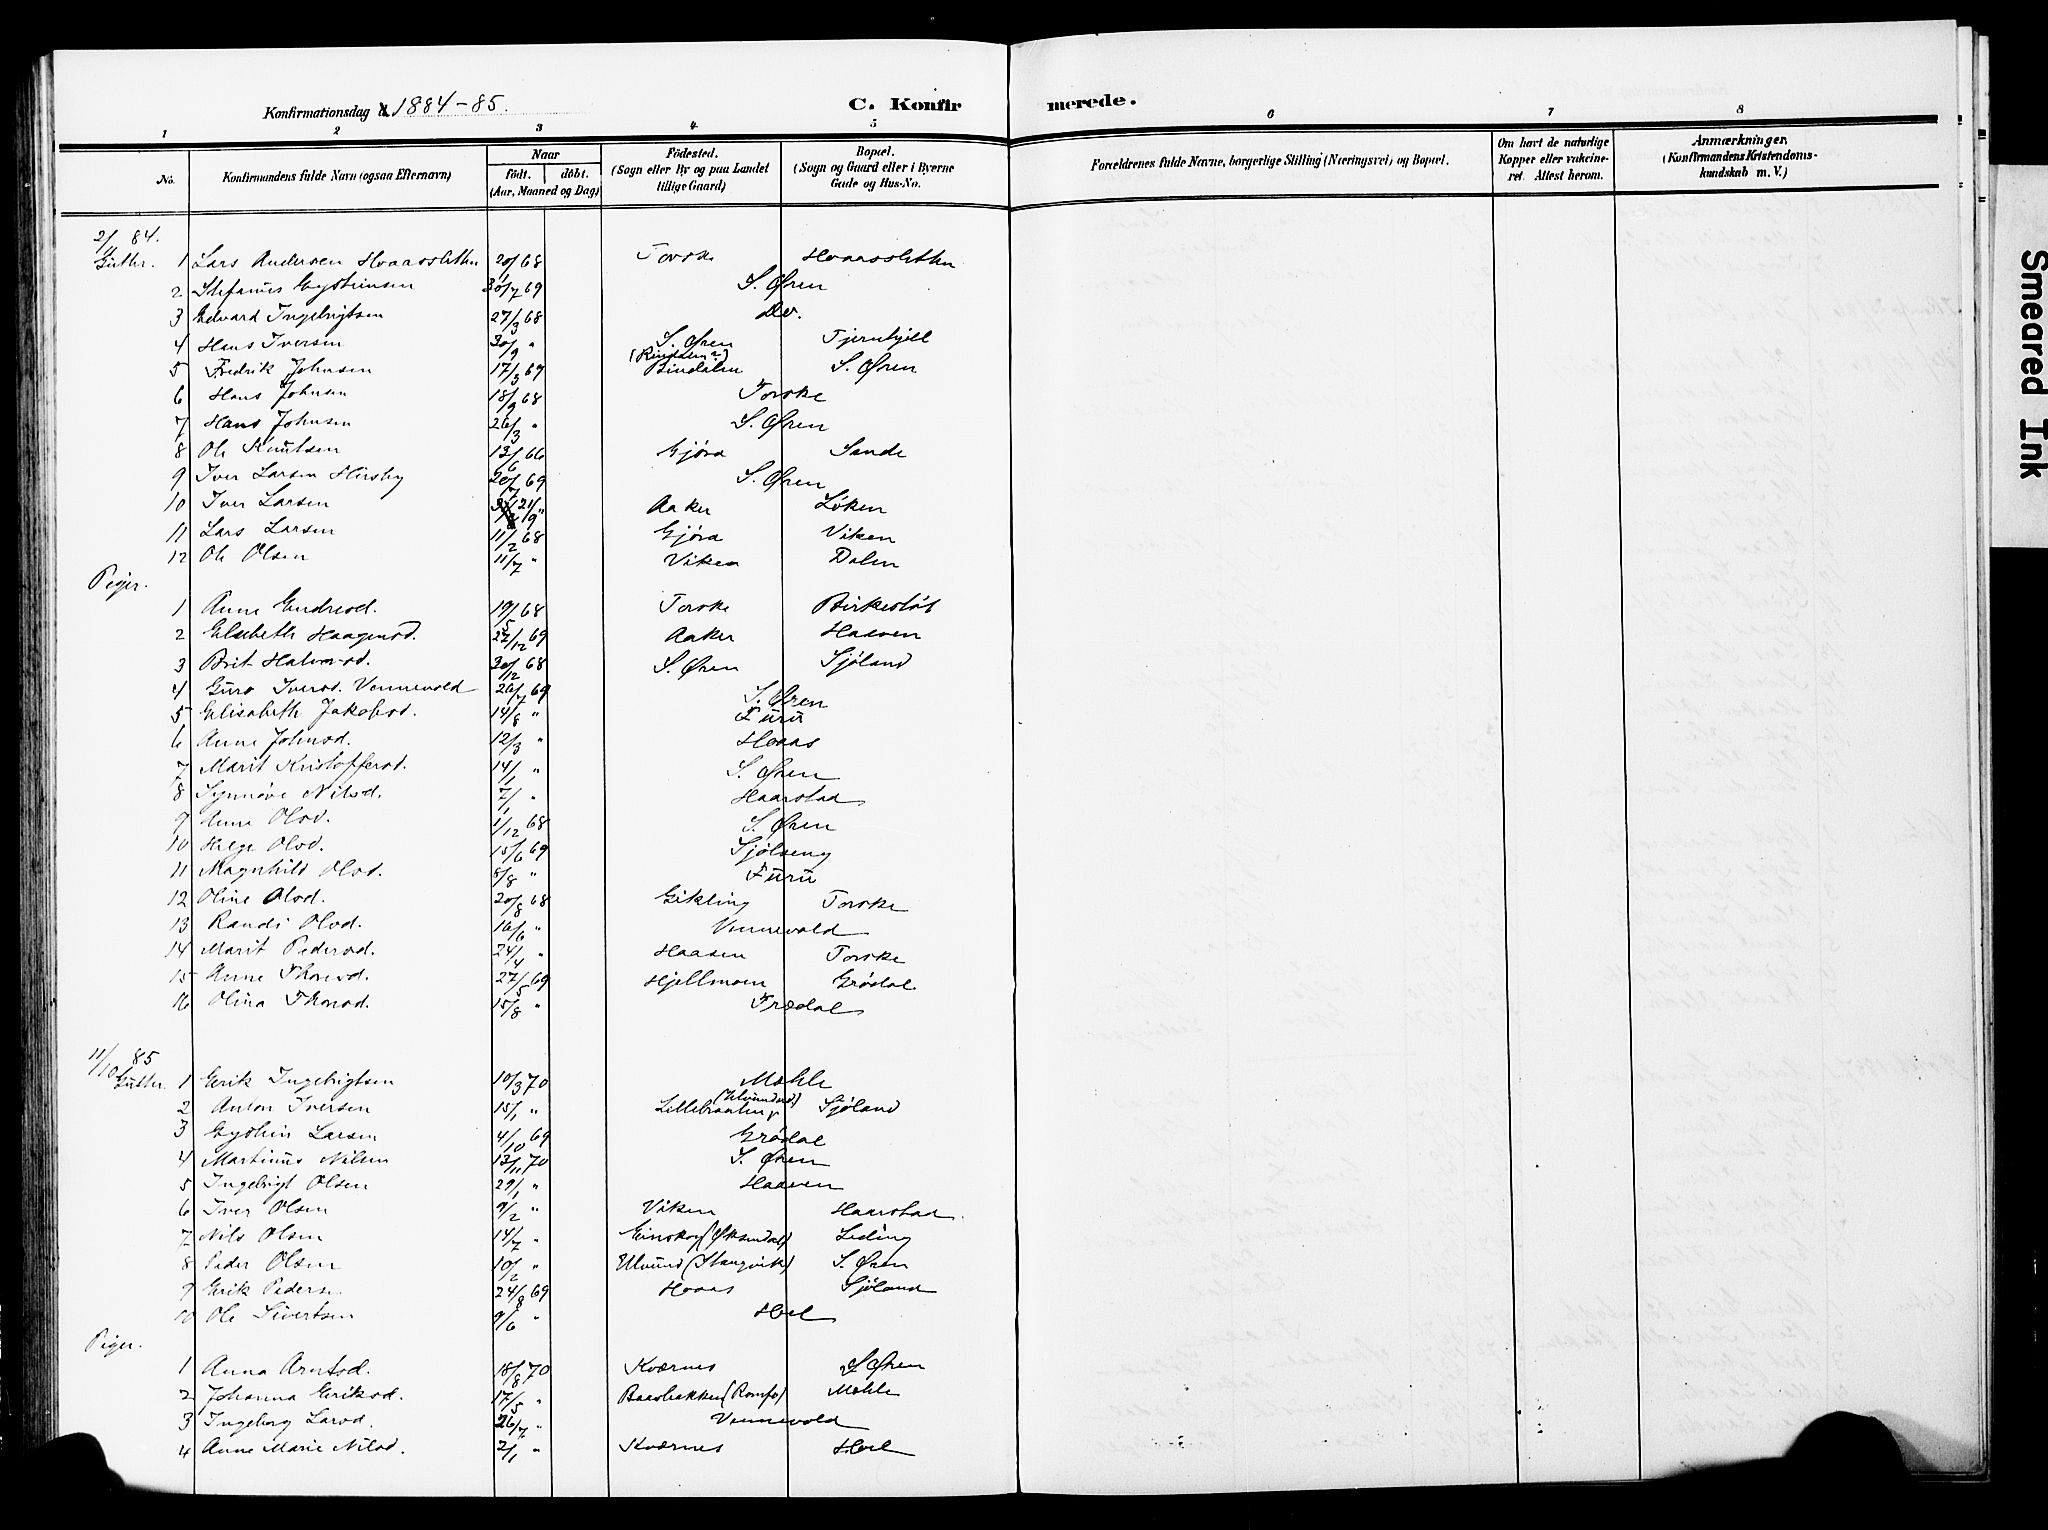 Konfirmationsdag 1884-85.
C. Konfir merede.
1 2 3 4 5 6 7 8
No. Konfirmandens fulde Navn (ogsaa Efternavn) Naar födt. döbt. (Aar, Maaned og Dag) Födested. (Sogn eller By og paa Landet tillige Gaard) Bopæl. (Sogn og Gaard eller i Byerne Gade og Hus-No. Forældrenes fulde Navne, borgerlige Stilling (Næringsvei) og Bopæl. Om havt de naturlige Kopper eller vaccineret. Attest herom. Anmærkninger. (Konfirmandens Kristendomskundskab m. V.)
2/11 84.
Gutter. 1 Lars Andersen Hoaassletten 20/1 68 Torske Hoaassletten
2 Stefanus Eysteinsen 30/7 69 S. Øren
3 Edvard Ingebrigtsen 27/3 68 Do.
4 Hans Iversen 30/9 " S. Øren Tjernhjell
5 Fredrik Johnsen 17/3 69 (Rindalen?) Bindalen S. Øren
6 Hans Johnsen 18/9 68 Torske
7 Hans Johnsen 26/3 " S. Øren
8 Ole Knutsen 13/6 66 Gjøra Sande
9 Iver Larsen Hirsby 20/7 69 S. Øren
10 Iver Larsen 21/9 " Aaker Løken
11 Lars Larsen 11/2 68 Gjøra Viken
12 Ole Olsen 11/7 " Viken Dalen
Piger.
1 Anne Endresd. 19/5 68 Torske Birkesløt
2 Elsebeth Haagensd. 22/12 69 Aaker Haaven
3 Brit Halvorsd. 20/12 68 S. Øren Sjøland
4 Guro Iversd. Vennevold 26/7 69 S. Øren
5 Elisabeth Jakobsd. 14/8 " Furu
6 Anne Johnsd. 12/3 " Hoaas
7 Marit Kristoffersd. 14/1 " S. Øren
8 Synnøve Nilsd. 7/1 " Haarstad
9 Anne Olsd. 1/12 68 S. Øren
10 Helge Olsd. 15/6 69 Sjølseng
11 Magnhild Olsd. 8/8 " Furu
12 Oline Olsd. 20/8 68 Gikling Torske
13 Randi Olsd. 16/6 " Vennevold
14 Marit Pedersd. 24/4 " Haasen Torske
15 Anne Thorsd. 27/5 69 Hjellmoen Grødal
16 Olina Thorsd. 15/8 " Trædal
11/10 85
Gutter. 1 Erik Ingebrigtsen 10/3 70 Mæhle
2 Anton Iversen 15/1 " Lillebraaten Sjøland
3 Eystein Larsen 4/10 69 Grødal
4 Martinus Nilsen 13/11 70 S. Øren
5 Ingebrigt Olsen 29/1 " Haaven
6 Iver Olsen 9/2 " Viken Haarstad.
7 Nils Olsen 14/7 " (Øksendal) Leding
8 Peder Olsen 10/2 " Ulvund (Stangvik) S. Øren
9 Erik Peders 24/8 69 Hoaas Sjøland
10 Ole Sivertsen 9/6 " Hoel
Piger.
1 Anna Arntsd. 18/8 70 Kværnes S Øren
2 Johanna Eriksd. 17/5 " Baasbakken (Romfo) Mæhle
3 Ingeborg Larsd. 26/7 " Vennevold
4 Anne Marie Nilsd. 2/1 " Kværnes Hoel
Smeared Ink